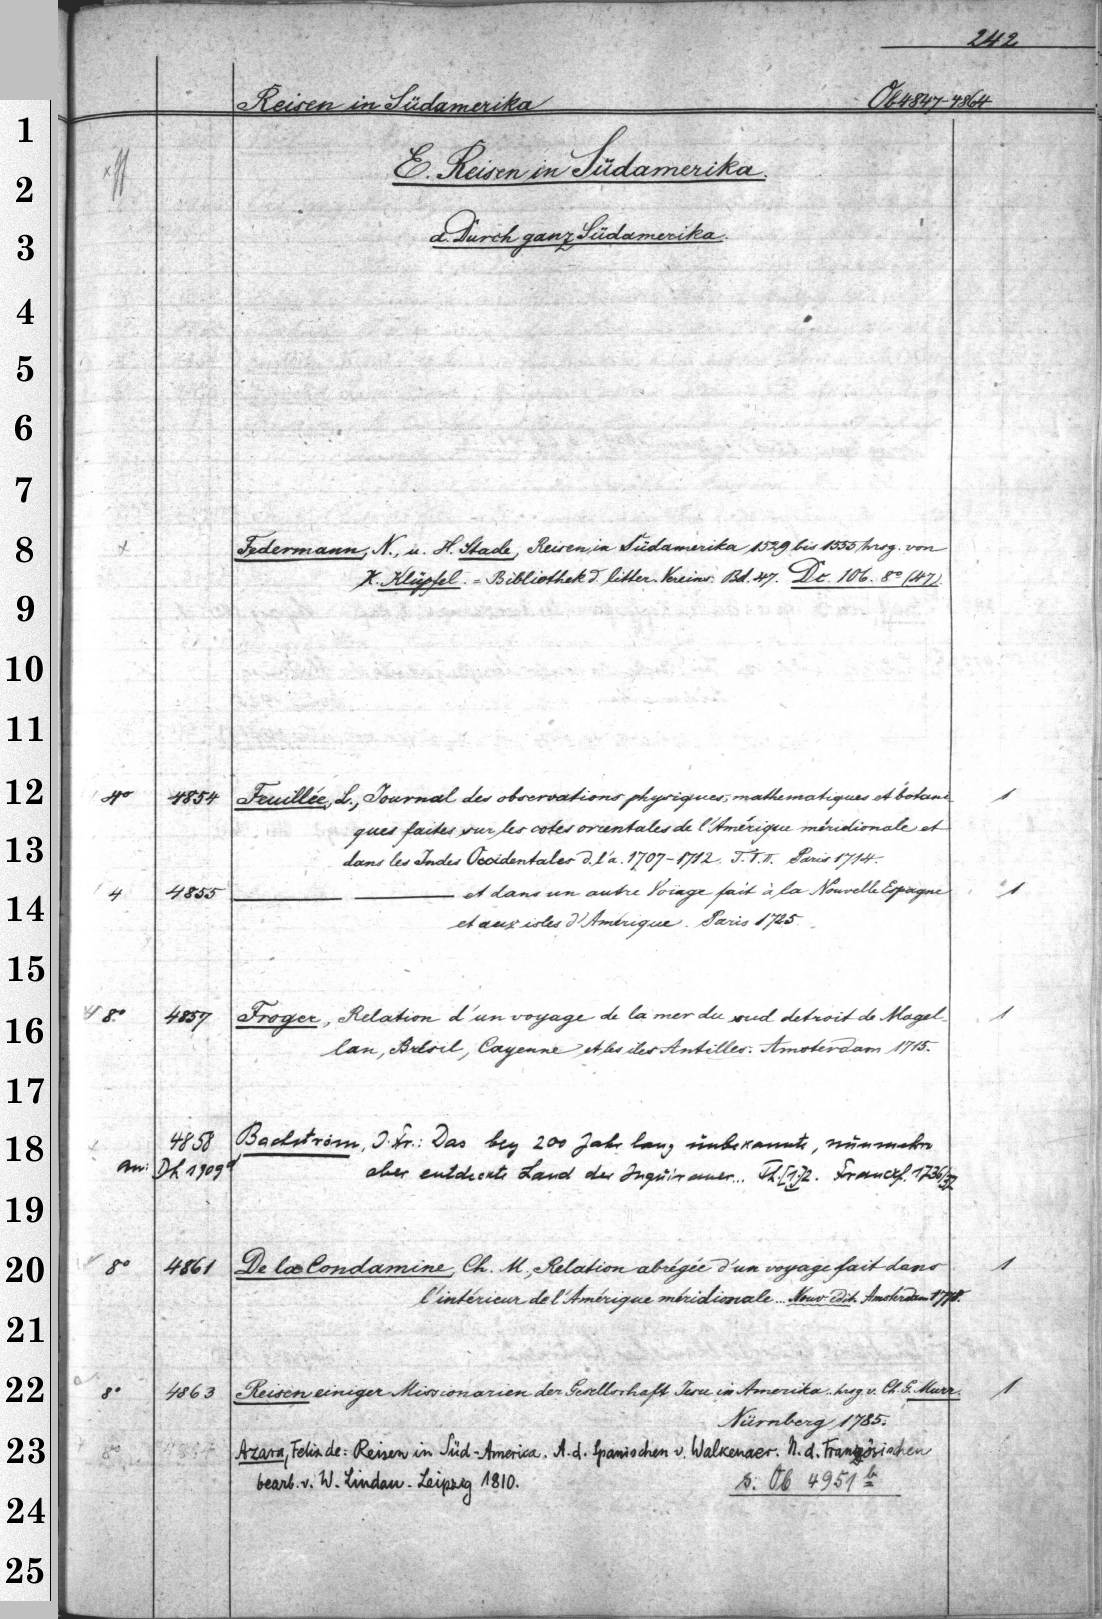 242
Reisen in Südamerika Ob 4847-4864
1
2 E. Reisen in Südamerika.
3 a. Durch ganz Südamerika.
4
5
6
7
8 Federmann, N., u. H. Stade, Reisen in Südamerika 1529 bis 1555 hrsg. von
K. Klüpfel. = Bibliothek d. litter. Vereins. Bd. 47. Dc. 106. 8° (47).
9
10
11
12 4° 4854 Feuillée, L., Journal des observations physiques, mathematiques et botani-
ques faites sur les cotes orientales de l'Amérique méridionale et
13 dans les Indes Occidentales d. l'a. 1707-1712. T. I. II. Paris 1714. 1
14 4 4855 ——— ——— et dans un autre Voiage fait à la Nouvelle Espagne 1
et aux isles d'Amérique. Paris 1725.
15
16 8° 4857 Froger, Relation d'un voyage de la mer du sud detroit de Magel- 1
lan, Brésil, Cayenne et les iles Antilles. Amsterdam 1715.
17
18 4858 Bachstrom, J. Fr.: Das bey 200 Jahr lang unbekannte, nunmehro
an: Dh 1909d aber entdeckte Land der Inquiraner... Th. [1.] 2. Franckf. 1736/37
19
20 8° 4861 De la Condamine, Ch. M., Relation abrégée d'un voyage fait dans 1
l'intérieur de l'Amérique méridionale... Nouv. edit. Amsterdam 1778.
21
22 8° 4863 Reisen einiger Missionarien der Gesellschaft Jesu in Amerika. hrsg. v. Ch. G. Murr. 1
Nürnberg 1785.
23 8° Azara, Felix de: Reisen in Süd-America. A. d. Spanischen v. Walkenaer. N. d. Französischen
bearb. v. W. Lindau. Leipzig 1810. s. Ob 4951 b
24
25